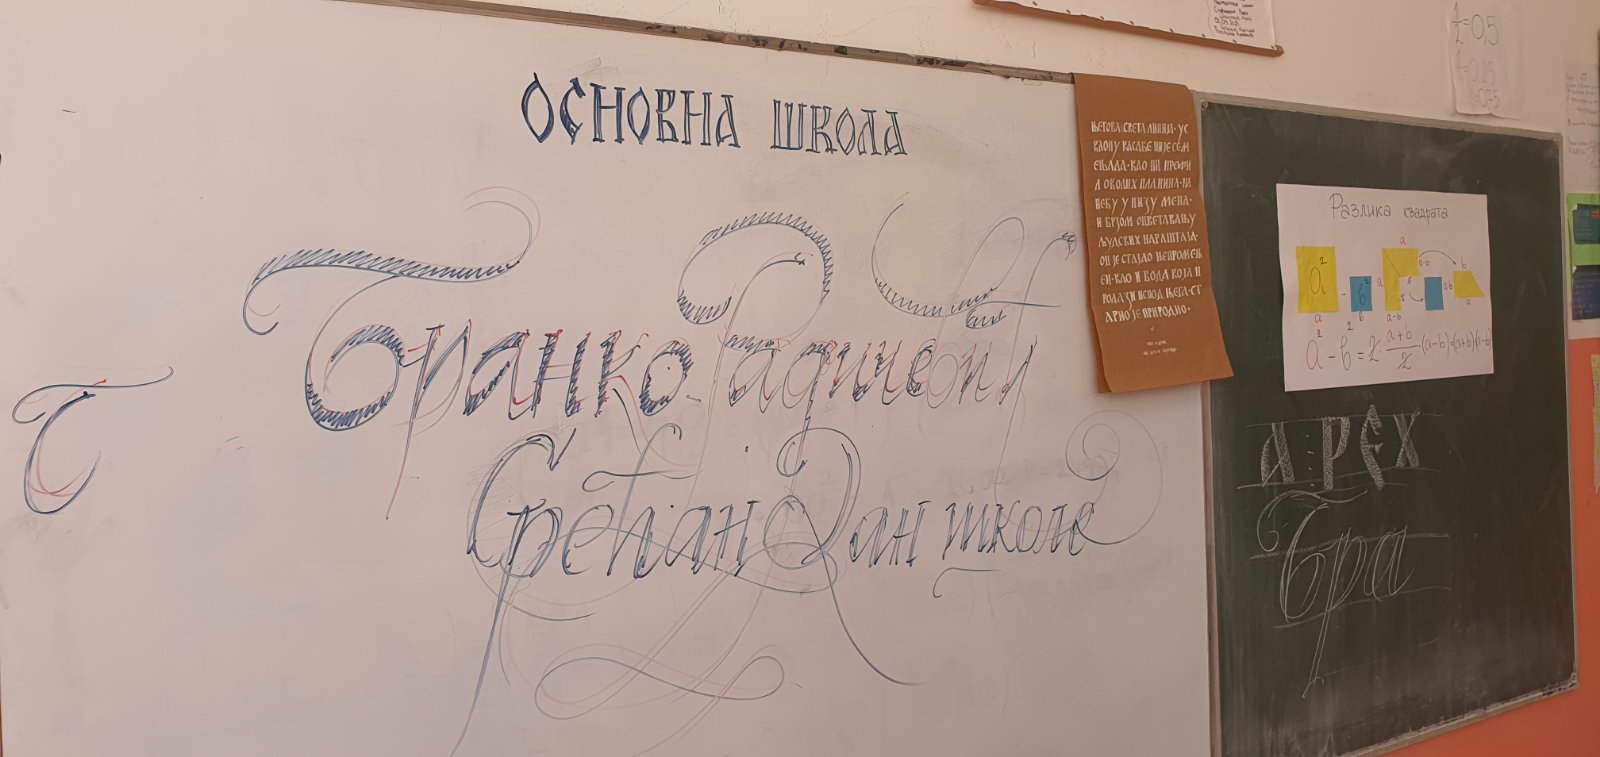 ОСНОВНА ШКОЛА
Бранко Радичевић
Срећан Дан школе
ЊЕГОВА СВЕТА ЛИНИЈА · УС
КЛОПУ КАСАБЕ НИЈЕ СЕ М
ЕЊАЛА · КАО НИ ПРОФИ
Л ОКОЛИХ ПЛАНИНА · НА
НЕБУ У НИЗУ МЕНА ·
И БРЗОМ ОЦВЕТАВАЊУ
ЉУДСКИХ НАРАШТАЈА ·
ОН ЈЕ СТАЈАО НЕПРОМЕЊ
ЕН · КАО И ВОДА КОЈА П
РОЛАЗИ ИСПОД ЊЕГА · СТ
АРНО ЈЕ ПРИРОДНО ·
Разлика квадрата
a² - b² = 2 (a+b)/2 · (a-b) = (a+b)(a-b)
А : Р Є Х
Бра
Б